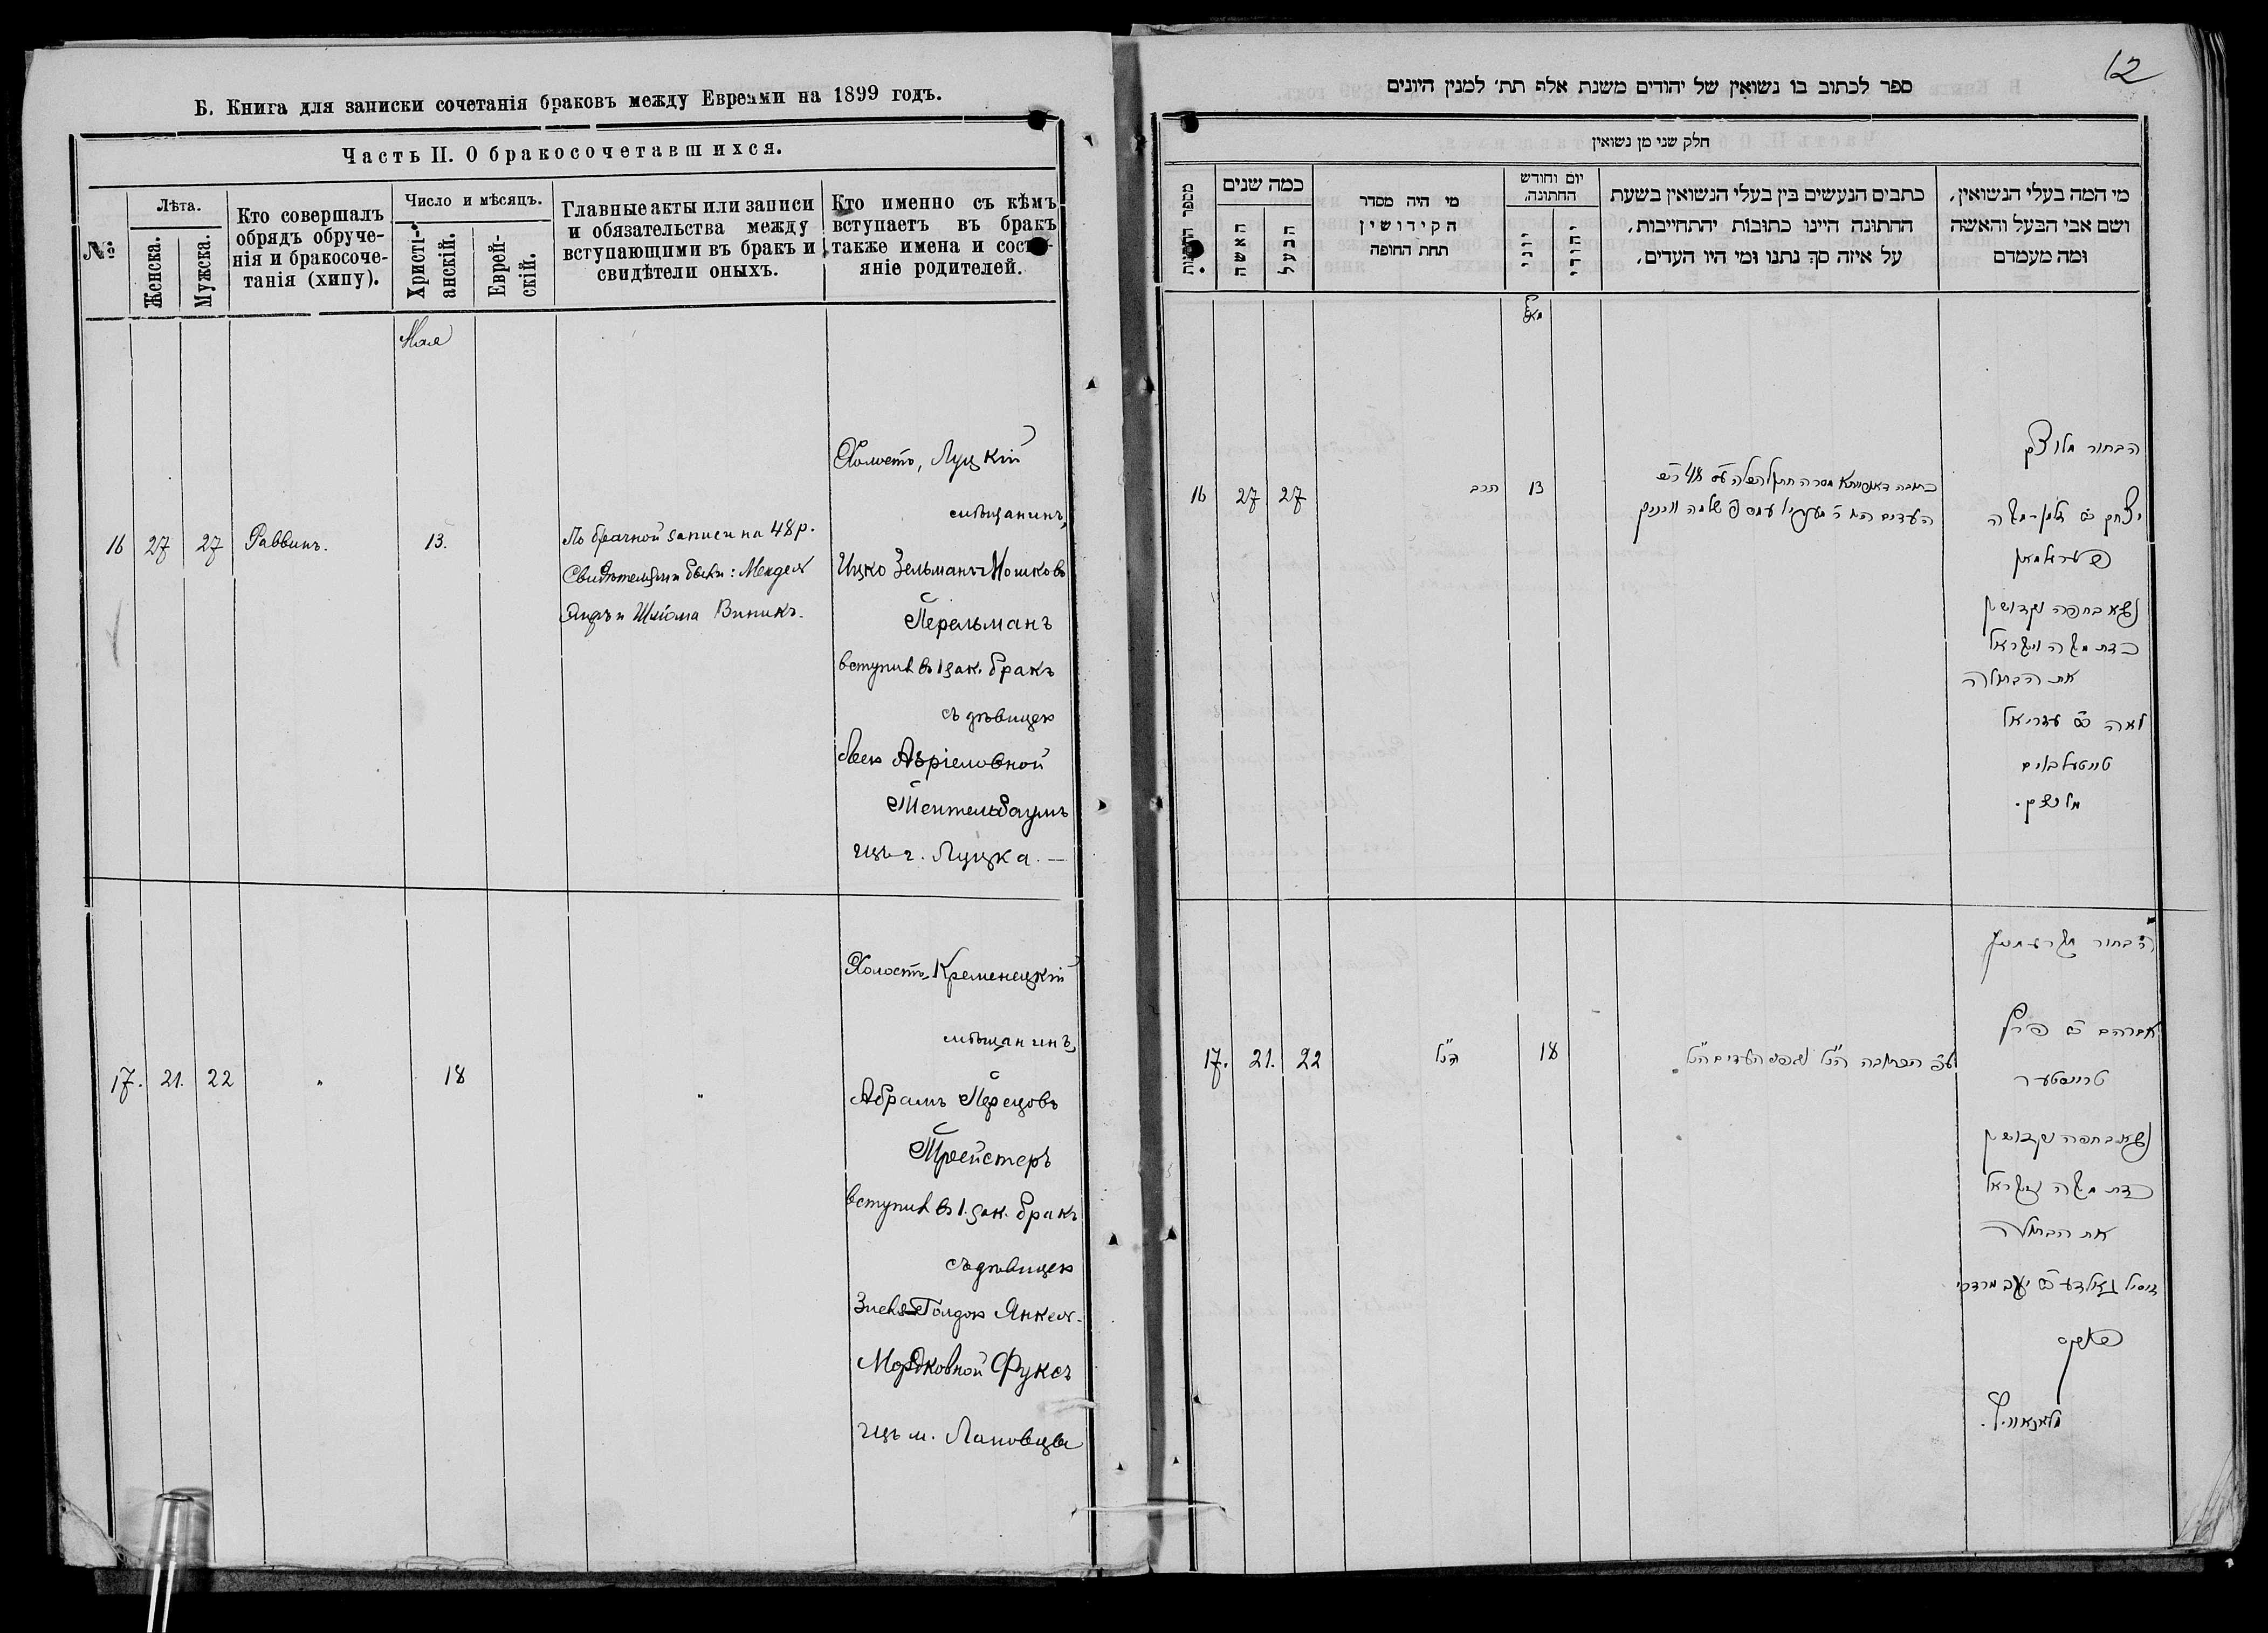 Б. Книга для записки сочетанія браковъ между Евреями на 1899 годъ.
Часть II. О бракосочетавшихся.
№
Лѣта.
Женска.
Мужска.
Кто совершалъ
обрядъ обруче-
нія и бракосоче-
танія (хипу).
Число и мѣсяцъ.
Христі-
анскій.
Еврей-
скій.
Главные акты или записи
и обязательства между
вступающими въ бракъ и
свидѣтели оныхъ.
Кто именно съ кѣмъ
вступаетъ въ бракъ
также имена и состо-
яніе родителей.
Мая
16
27
27
Раввинъ.
13.
По брачной записи на 48 р.
Свидѣтелями были: Мендель
и Шлёма Виникъ.
Холостъ, Луцкій
мѣщанинъ,
Ицко Зельманъ Мошковъ
Перельманъ
вступилъ въ 1 зак. бракъ
съ дѣвицею
Леею Азріеловной
Тейтельбаумъ
изъ г. Луцка. —
17.
21.
22
"
18
"
Холостъ Кременецкій
мѣщанинъ,
Абрамъ Перецовъ
Трейстеръ
вступилъ въ 1. зак. бракъ
съ дѣвицею
Голдою Янкель-
Мордковной Фуксъ
изъ м. Лановцы
12
ספר לכתוב בו נשואין של יהודים משנת אלף תת׳ למנין היונים
חלק שני מן נשואין
כמה שנים
האשה
הבעל
מי היה מסדר
הקידושין
תחת החופה
יום וחודש
החתונה,
יוני
יהודי
כתבים הנעשים בין בעלי הנשואין בשעת
החתונה היינו כתובות יהתחייבות,
על איזה סך נתנו ומי היו העדים,
מי המה בעלי הנשואין,
ושם אבי הבעל והאשה
ומה מעמדם
מאי
16
27
27
הרב
13
הבחור מלוצק
יצחק זלמן משה
פערלמאן
נשא בחופה וקדושין
כדת משה וישראל
את הבתולה
לאה עזריאל
טייטעלבוים
מלוצק.
17.
21.
22
הנ"ל
18
עפ"י הכתובה הנ"ל ובפני העדים הנ"ל
הבחור מקרעמניץ
אברהם פרץ
טרייסטער
נשא בחופה וקדושין
כדת משה וישראל
את הבתולה
גאלדע יעקב מרדכי
פוקס